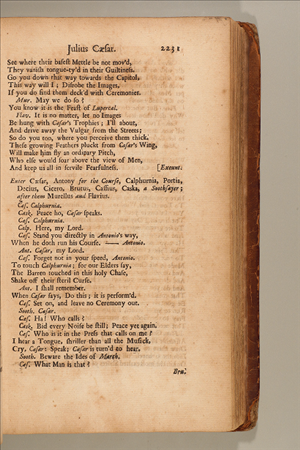 Julius Cæsar. 2231
See where their basest Mettle be not mov'd,
They vanish tongue-ty'd in their Guiltiness.
Go you down that way towards the Capitol,
This way will I; Disrobe the Images,
If you do find them deck'd with Ceremonies.
Mur. May we do so?
You know it is the Feast of Lupercal.
Flav. It is no matter, let no Images
Be hung with Cæsar's Trophies; I'll about,
And drive away the Vulgar from the Streets;
So do you too, where you perceive them thick.
These growing Feathers pluckt from Cæsar's Wing,
Will make him fly an ordinary Pitch,
Who else would soar above the view of Men,
And keep us all in servile Fearfulness. [Exeunt.
Enter Cæsar, Antony for the Course, Calphurnia, Portia,
Decius, Cicero, Brutus, Cassius, Caska, a Soothsayer;
after them Murellus and Flavius.
Cæs. Calphurnia.
Cask. Peace ho, Cæsar speaks.
Cæs. Calphurnia.
Calp. Here, my Lord.
Cæs. Stand you directly in Antonio's way,
When he doth run his Course. —— Antonio.
Ant. Cæsar, my Lord.
Cæs. Forget not in your speed, Antonio,
To touch Calphurnia; for our Elders say,
The Barren touched in this holy Chase,
Shake off their steril Curse.
Ant. I shall remember.
When Cæsar says, Do this; it is perform'd.
Cæs. Set on, and leave no Ceremony out.
Sooth. Cæsar.
Cæs. Ha! Who calls?
Cask. Bid every Noise be still; Peace yet again.
Cæs. Who is it in the Press that calls on me?
I hear a Tongue, shriller than all the Musick,
Cry, Cæsar: Speak; Cæsar is turn'd to hear.
Sooth. Beware the Ides of March.
Cæs. What Man is that?
Bru.